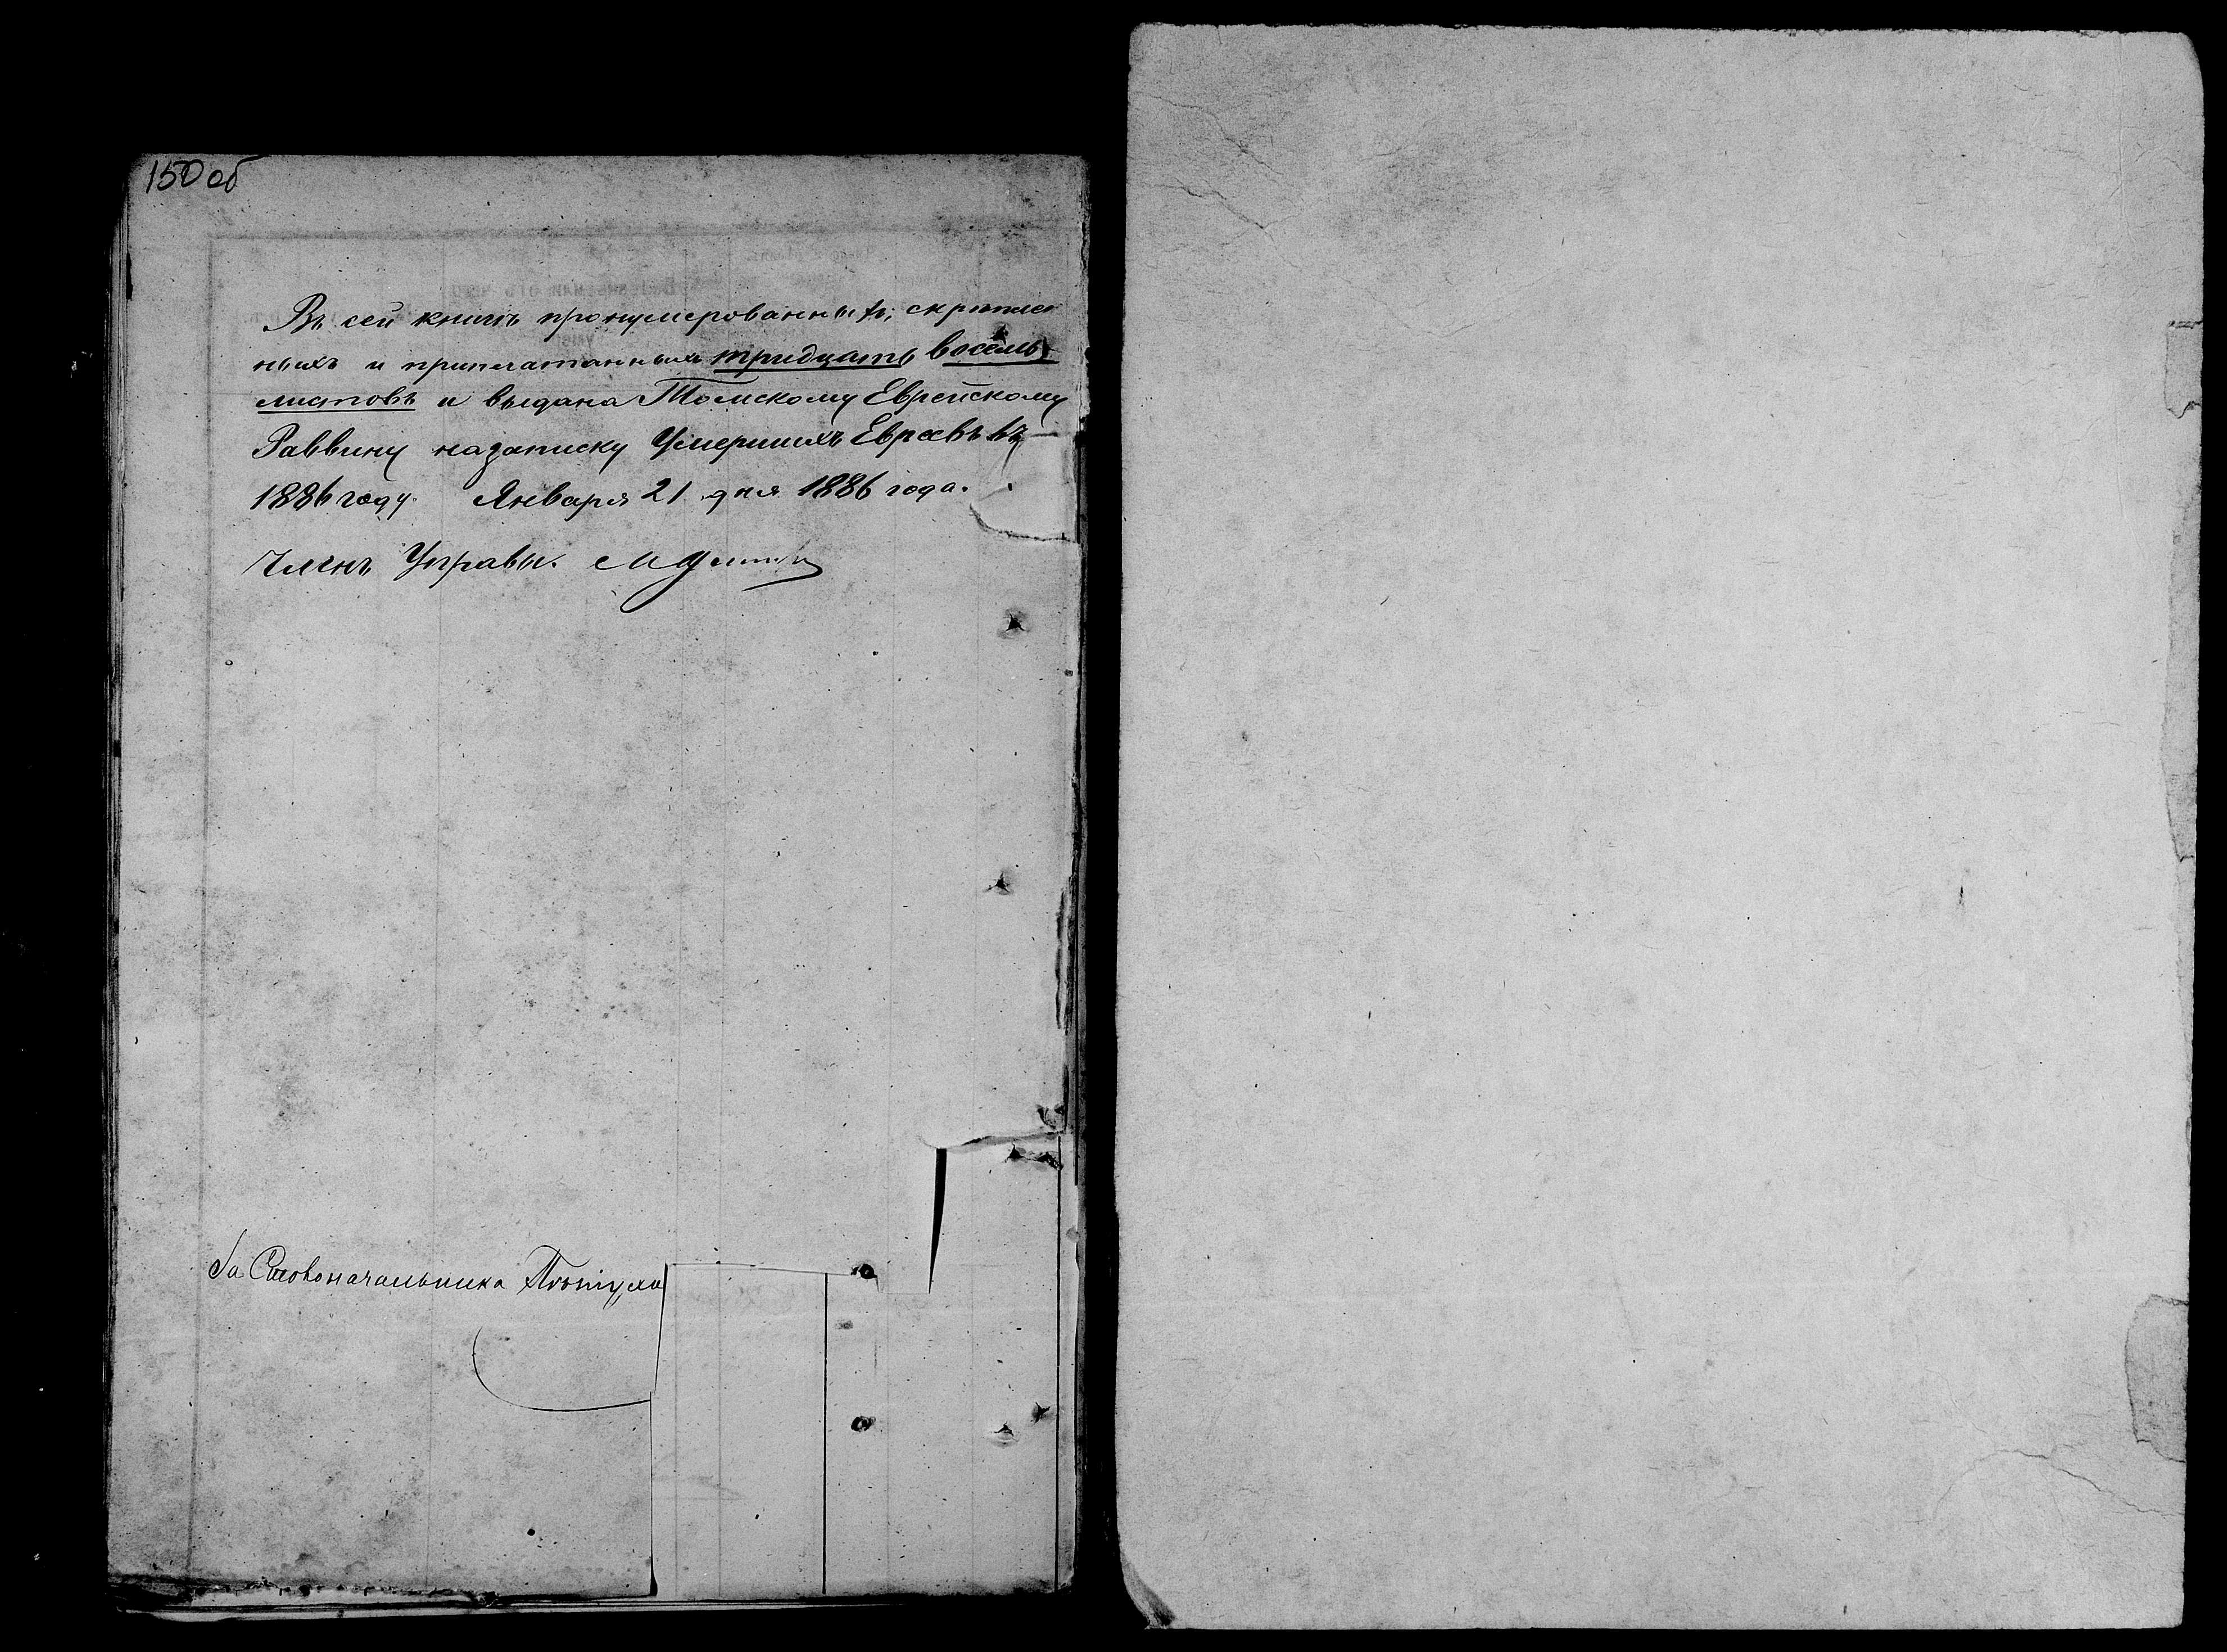 150 об
Въ сей книгѣ пронумерованныхъ, скрѣплен
ныхъ и припечатанныхъ тридцать восемь
листовъ и выдана Томскому Еврейскому
Раввину на записку Умершихъ Евреевъ въ
1886 году. Января 21 дня 1886 года.
Членъ Управы. М
За Столоначальника